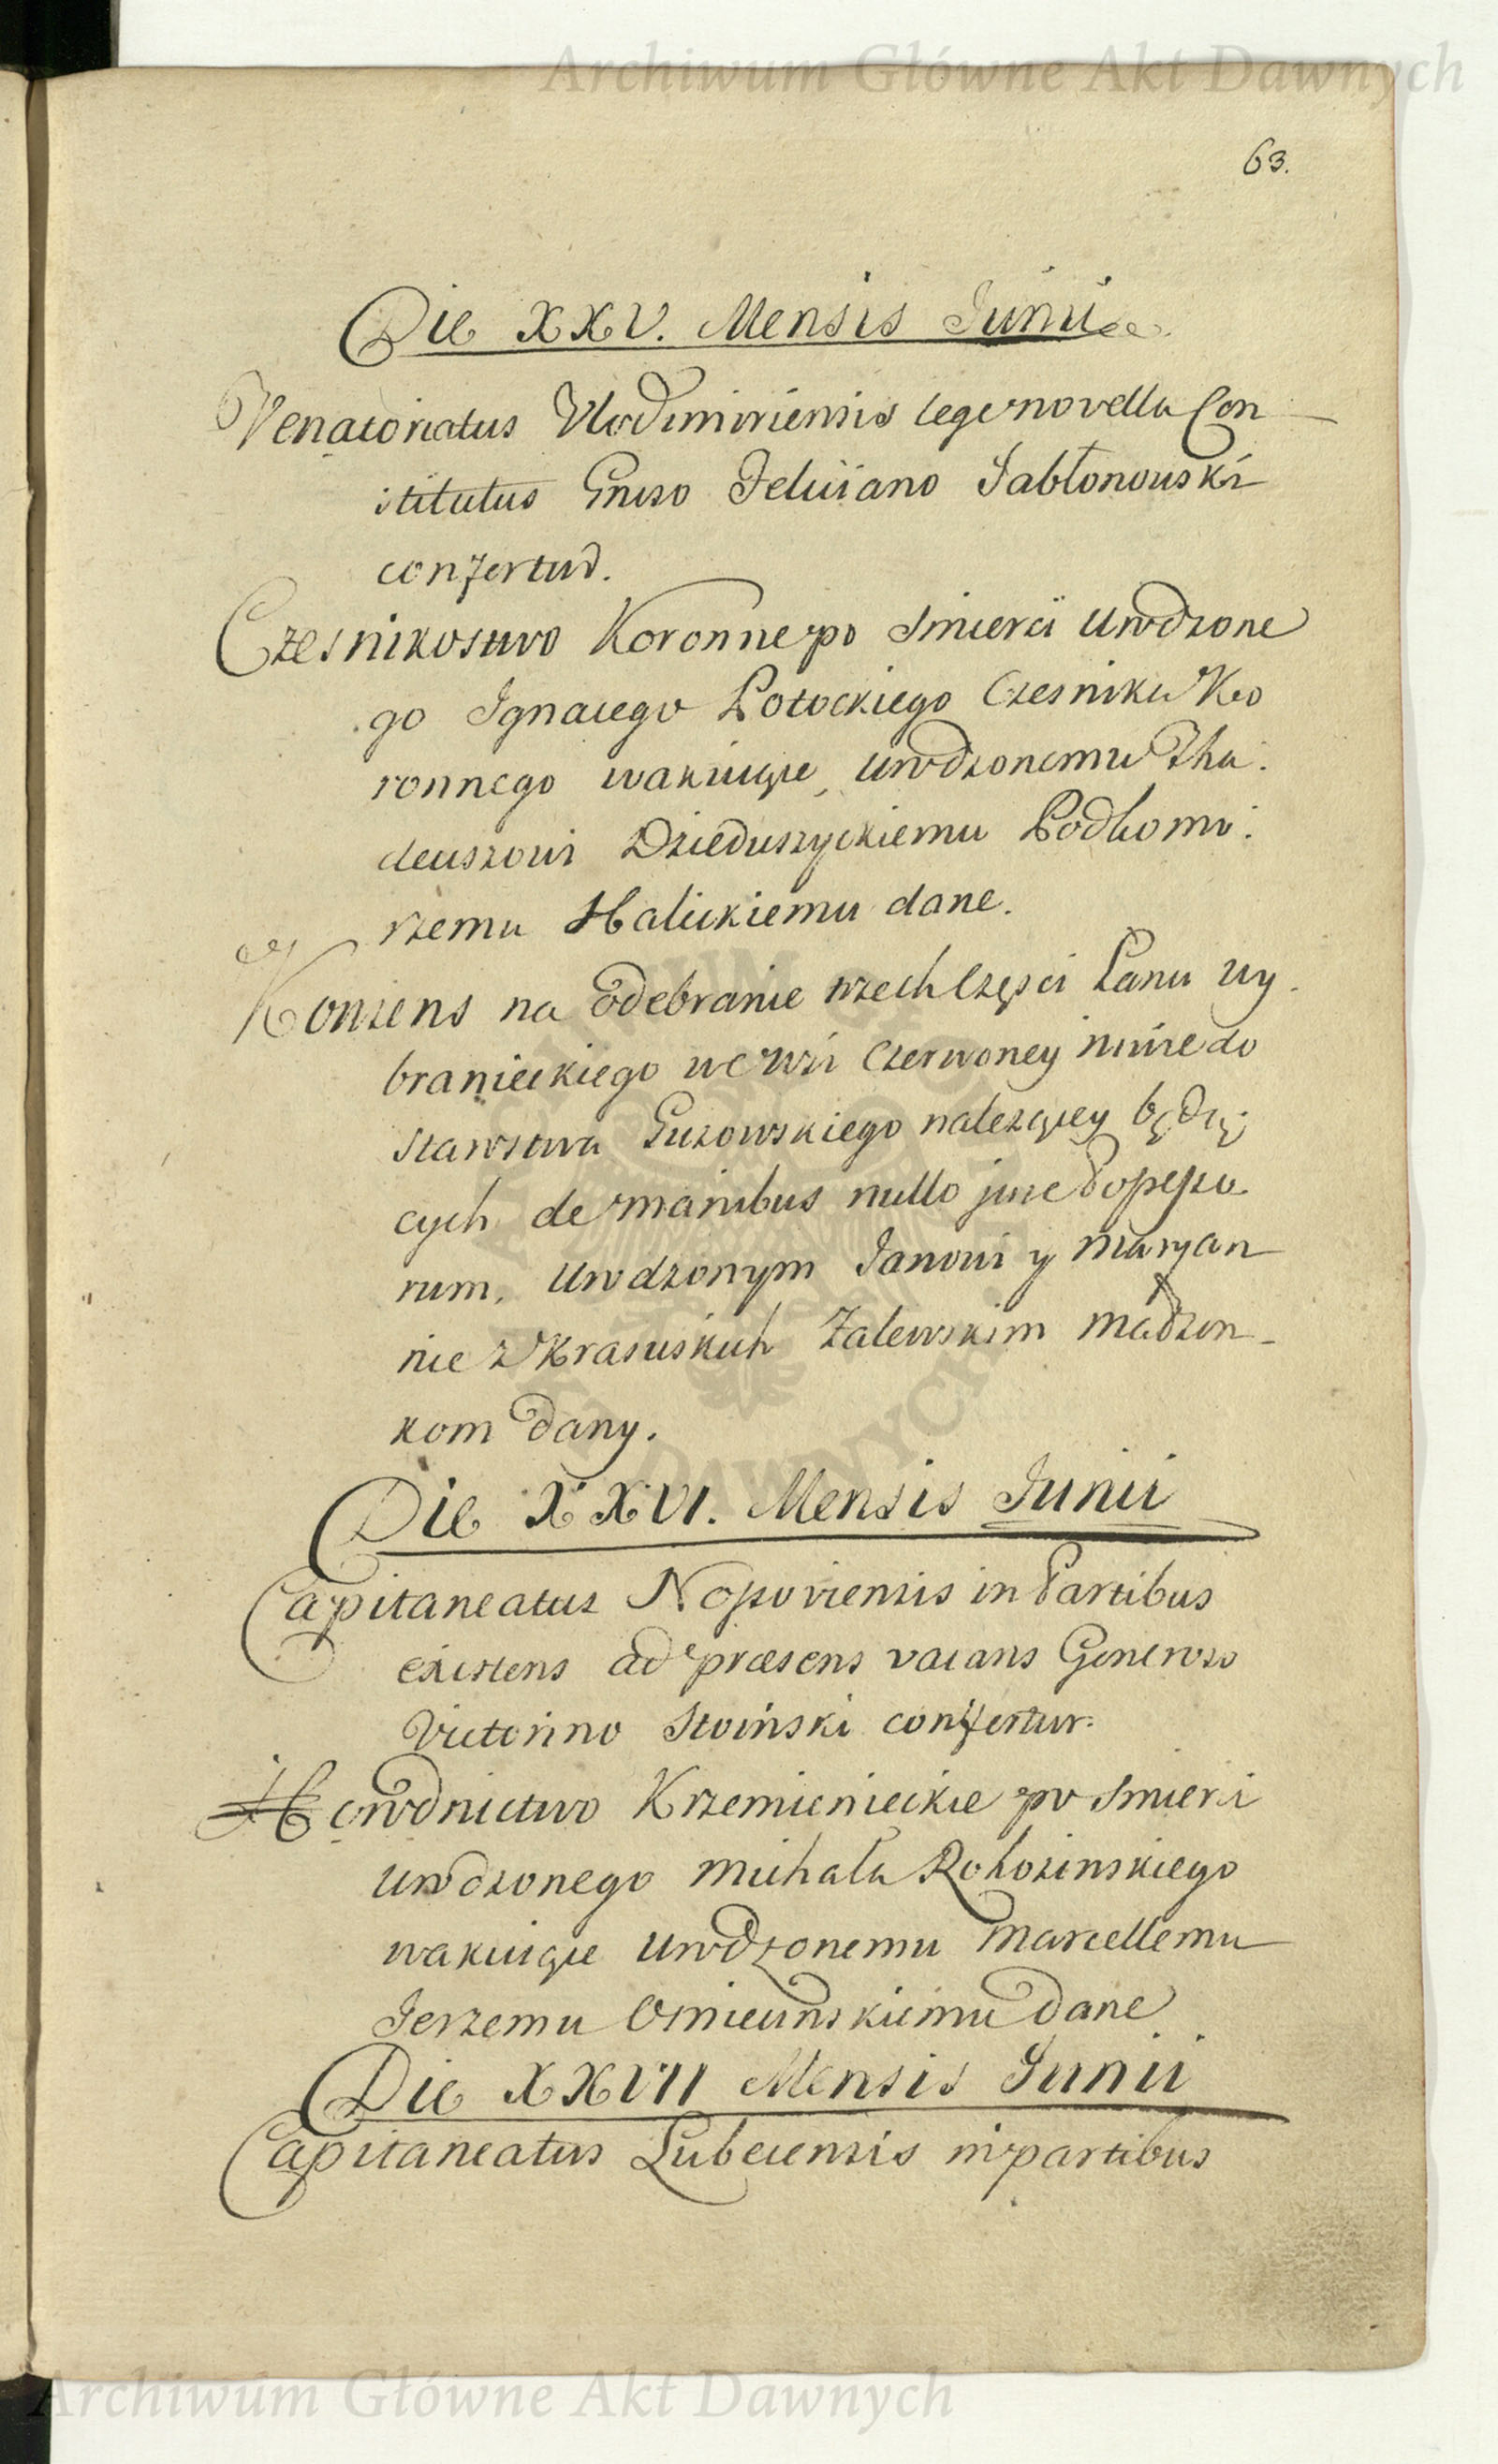 Archiwum Główne Akt Dawnych
63.
Die XXV. Mensis Junii
Venatoriatus Vlodimiriensis lege novella Con
stitutus Gnroso Feliciano Jabłonowski
confertur.
Czesnikostwo Koronne po Smierci Urodzone
go Ignacego Potockiego Czesnika Ko
ronnego wakuiące, Urodzonemu Tha:
deuszowi Dzieduszyckiemu Podkomo:
rzemu Halickiemu dane.
Konsens na odebranie trzech Części Łanu wy
branieckiego we wsi Czerwoney niwie do
Starostwa Guzowskiego należącey będą:
cych de manibus nullo jure Possesso
rum, Urodzonym Janowi y Maryan
nie z Krasuskich Zalewskim Małżon
kom dany.
Die XXVI. Mensis Junii
Capitaneatus Nossoviensis in Partibus
existens ad præsens vacans Generoso
Victorino Stoiński confertur.
Horodnictwo Krzemienieckie po Smierci
Urodzonego Michała Rohozinskiego
wakuiące Urodzonemu Marcellemu
Jerzemu Omiecinskiemu Dane
Die XXVII Mensis Junii
Capitaneatus Lubecensis in partibus
Archiwum Główne Akt Dawnych